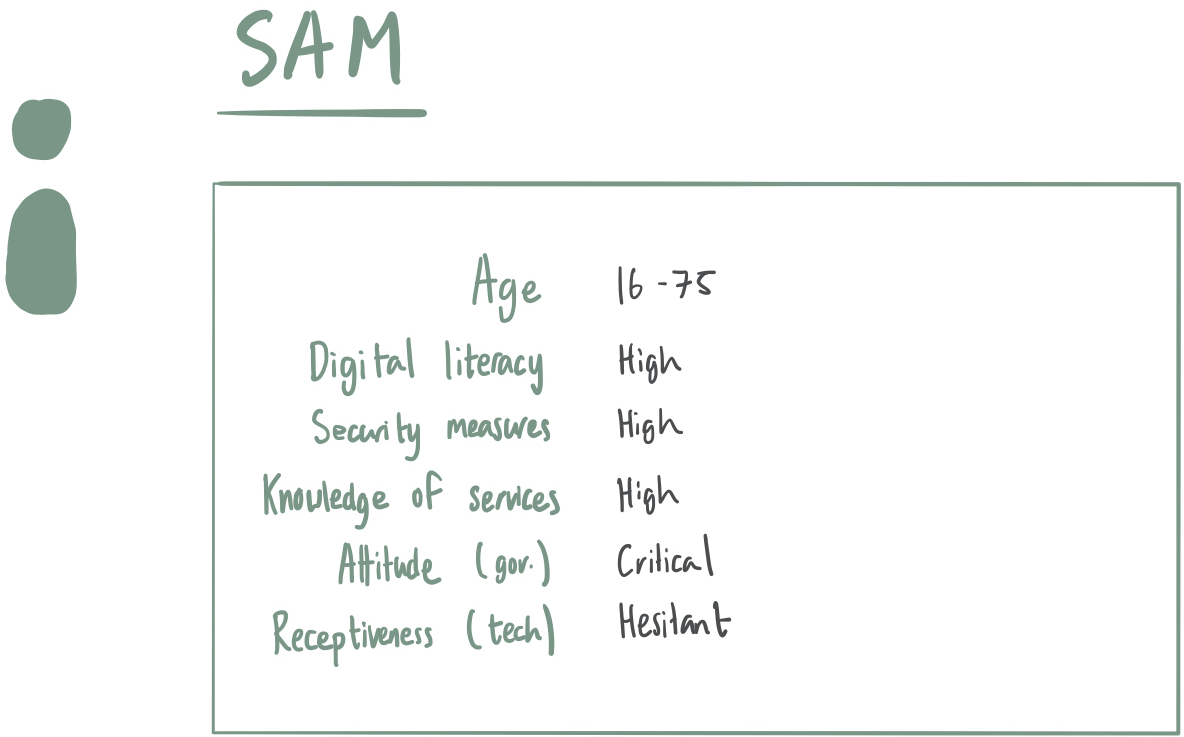 SAM
Age 16-75
Digital literacy High
Security measures High
Knowledge of services High
Attitude (gov.) Critical
Receptiveness (tech) Hesitant